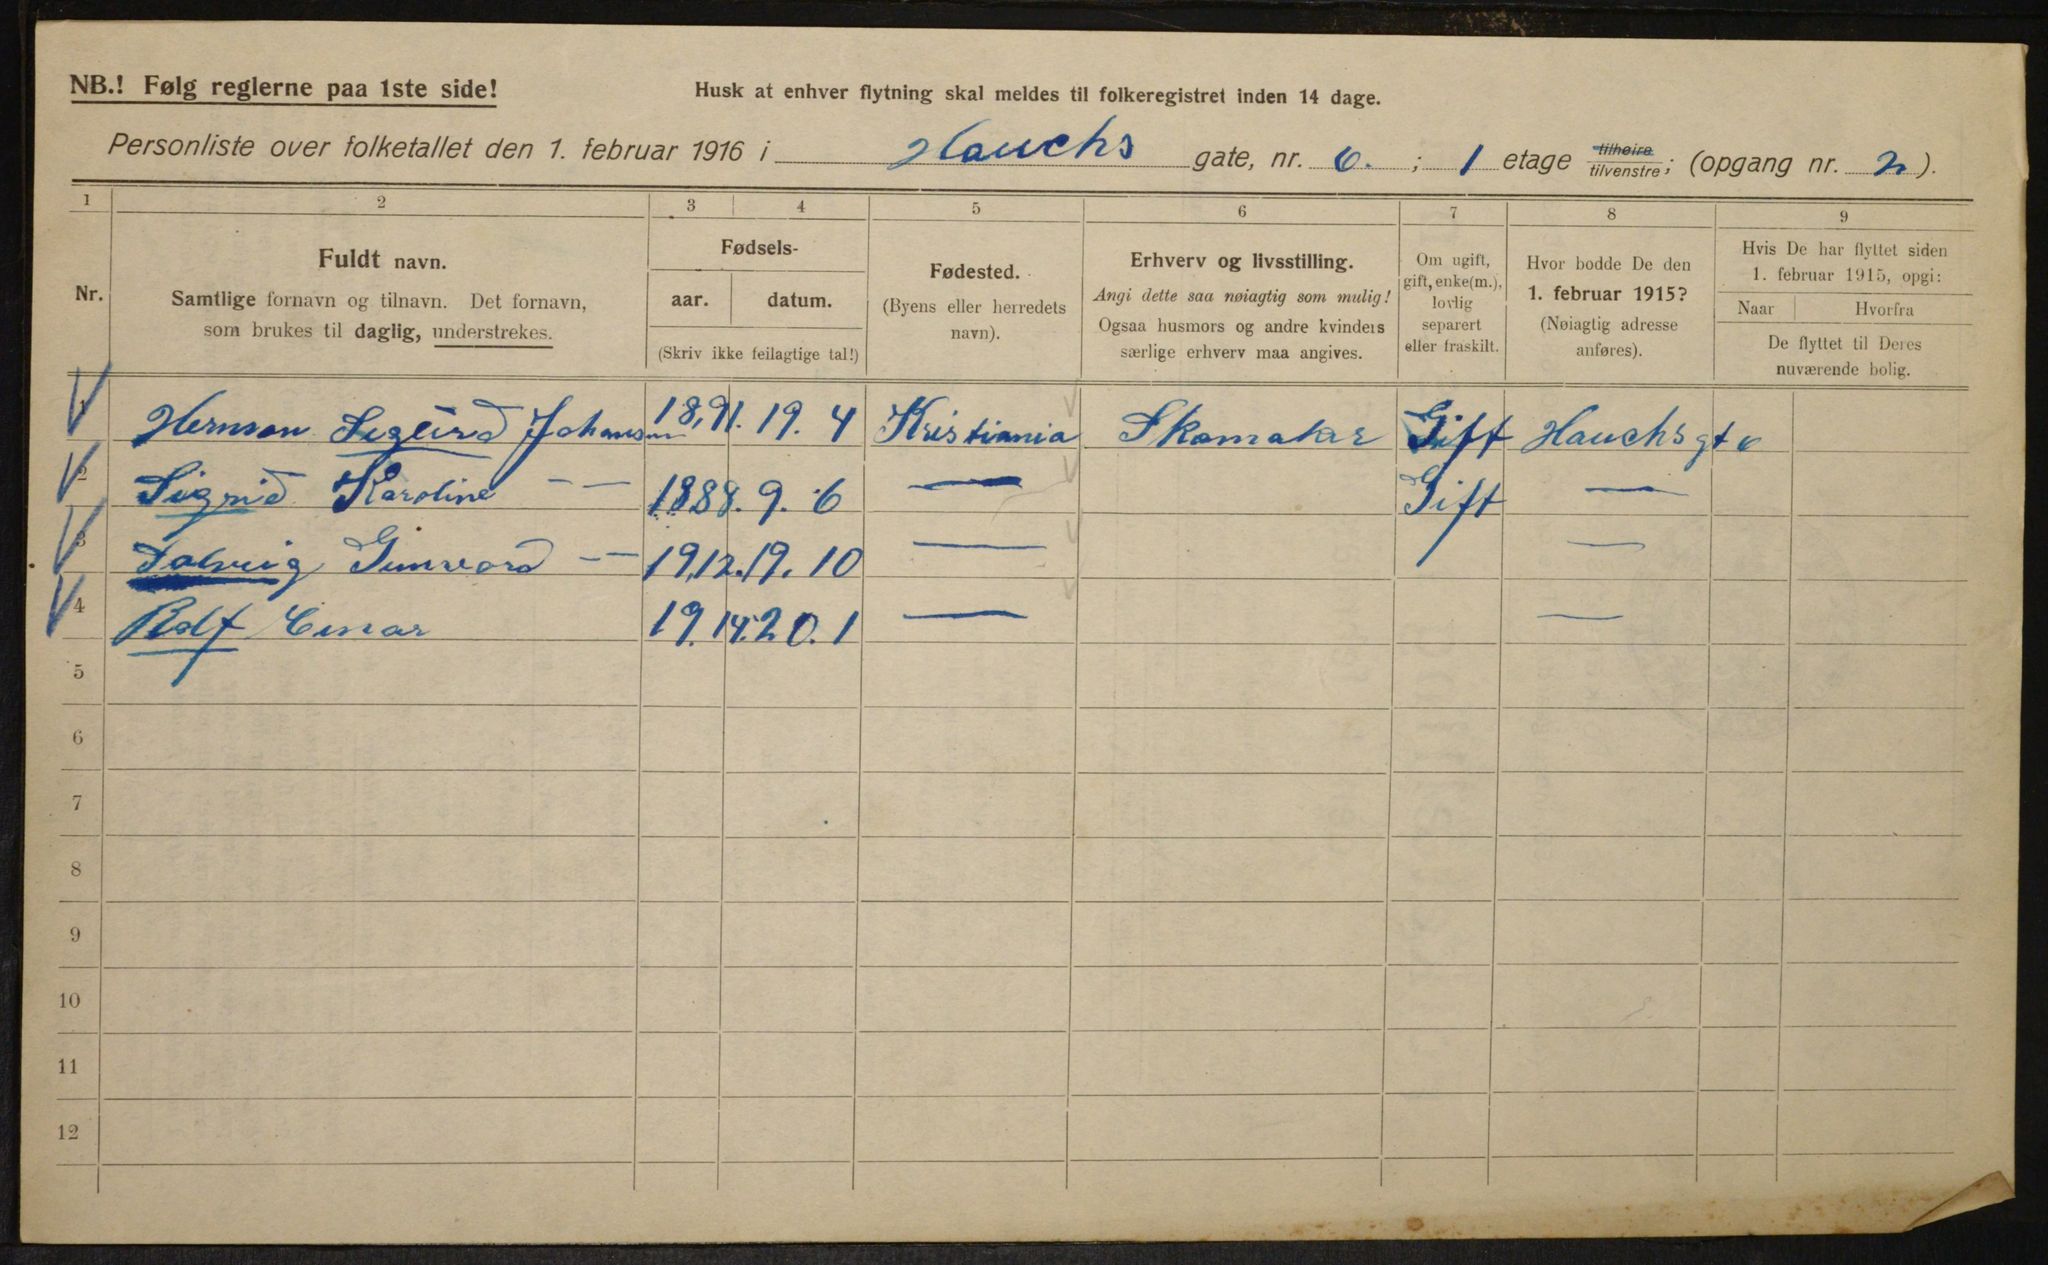 NB.! Følg reglerne paa 1ste side!
Husk at enhver flytning skal meldes til folkeregistret inden 14 dage.
Personliste over folketallet den 1. februar 1916 i Hauchs gate, nr. 6. ; 1 etage tilhøire/tilvenstre; (opgang nr. 2).
1 2 3 4 5 6 7 8 9
Nr.
Fuldt navn.
Samtlige fornavn og tilnavn. Det fornavn,
som brukes til daglig, understrekes.
Fødsels-
aar. datum.
(Skriv ikke feilagtige tal!)
Fødested.
(Byens eller herredets
navn).
Erhverv og livsstilling.
Angi dette saa nøiagtig som mulig!
Ogsaa husmors og andre kvinders
særlige erhverv maa angives.
Om ugift,
gift, enke(m.),
lovlig
separert
eller fraskilt.
Hvor bodde De den
1. februar 1915?
(Nøiagtig adresse
anføres).
Hvis De har flyttet siden
1. februar 1915, opgi:
Naar Hvorfra
De flyttet til Deres
nuværende bolig.
1 Herman Sigurd Johansen 18,91. 19. 4 Kristiania Skomaker Gift Hauchs gt 6
2 Sigrid Karoline — — 1888. 9. 6 — Gift —
3 Solveig Gunvord — 19,12. 19. 10 — —
4 Rolf Einar 19.14. 20. 1 — —
5
6
7
8
9
10
11
12